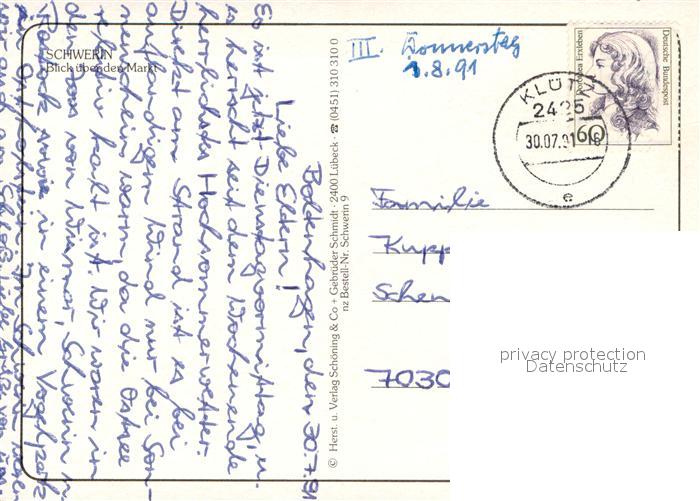 SCHWERIN
Blick über den Markt
III. Donnerstag
1.8.91
Dorothea Erxleben
Deutsche Bundespost
60
KLÜTZ
2425
30.07.91-16
e
Familie
Kupp
Schen
7030
privacy protection
Datenschutz
© Herst. u. Verlag Schöning & Co + Gebrüder Schmidt · 2400 Lübeck · ☎ (0451) 310 310 0
nz Bestell-Nr. Schwerin 9
Boltenhagen, den 30.7.91
Liebe Eltern!
Es ist jetzt Dienstagvormittag, u.
es herrscht seit dem Wochenende
herrlichstes Hochsommerwetter.
Direkt am Strand ist es bei
auflandigem Wind nur bei Son-
nenschein warm, da die Ostsee
sehr kalt ist. Wir waren in
der von Wismar, Schwerin u.
Rostock sowie in einem Vogelpark
in Schwerin